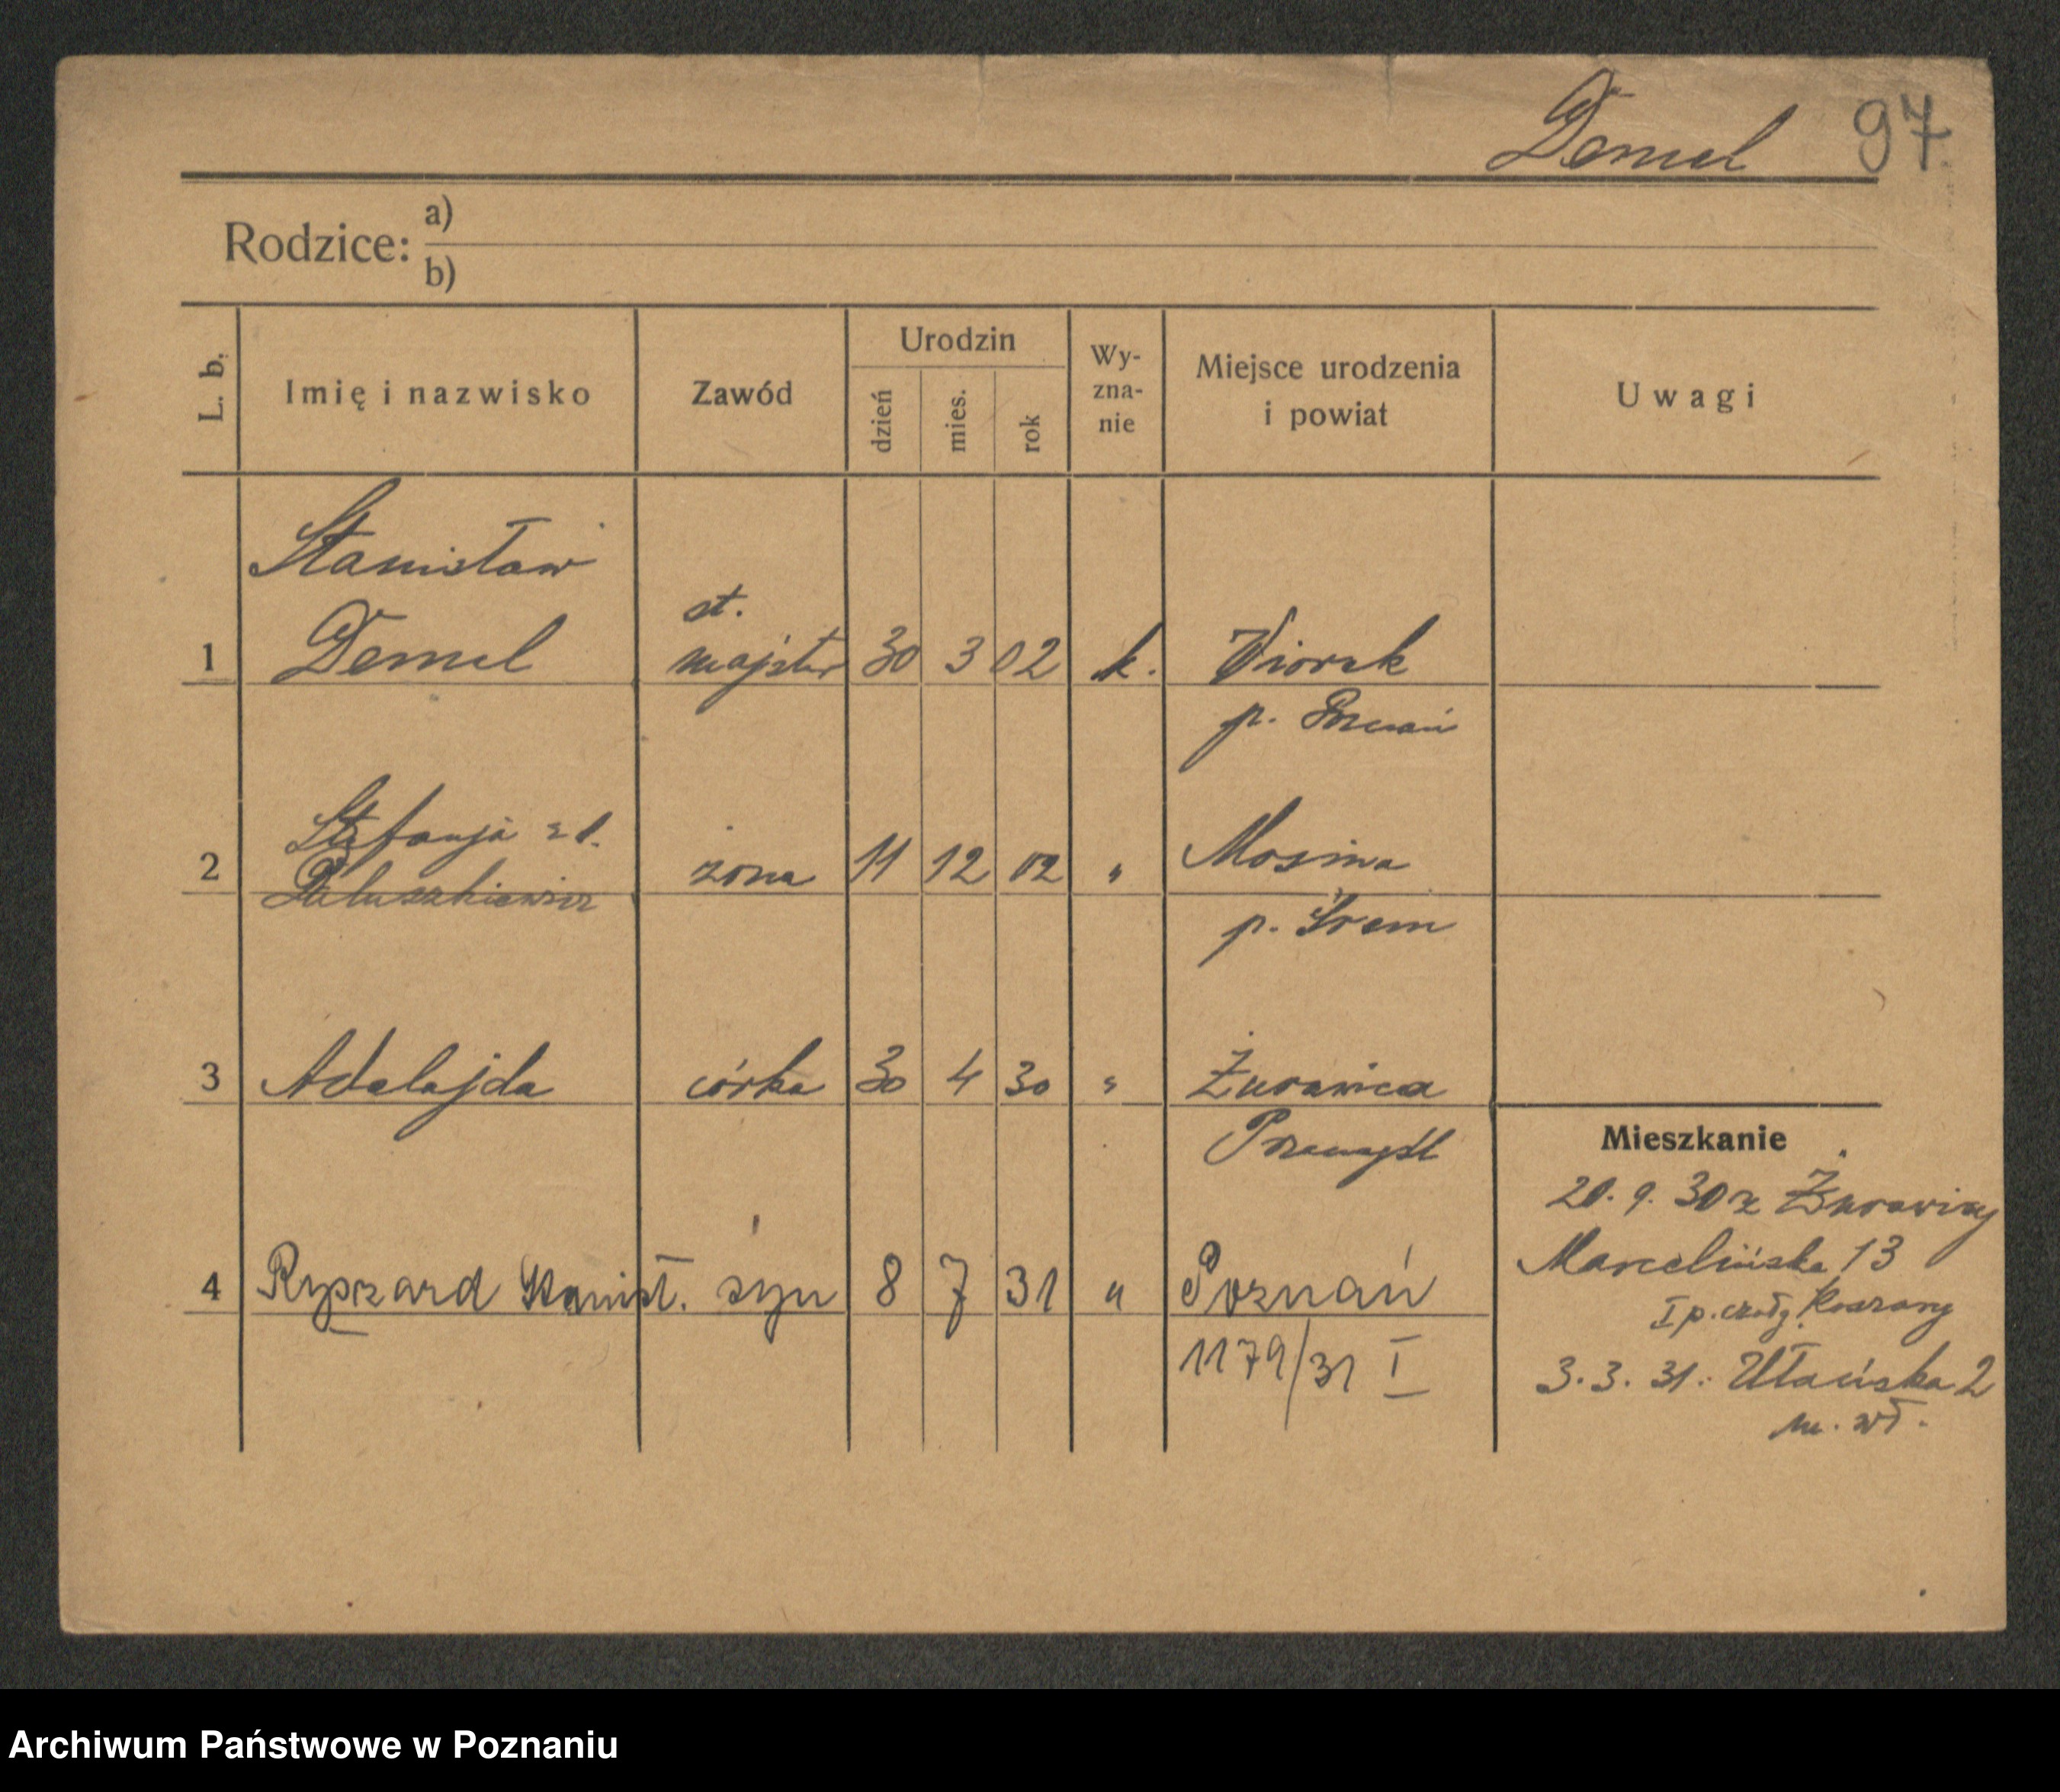 Demel 97.
Rodzice: a)
b)
L. b. Imię i nazwisko Zawód Urodzin dzień mies. rok Wy-zna-nie Miejsce urodzenia i powiat Uwagi
Stanisław
st.
1 Demel majster 30 3 02 k. Wiorek
p. Poznań
Stefanja z d.
2 Paluszkiewicz żona 11 12 02 " Mosina
p. Śrem
3 Adelajda córka 30 4 30 " Żurawica
Przemyśl
Mieszkanie
20. 9. 30 z Żurawicy
Marcelińska 13
I p. czołg. Koszary
4 Ryszard Stanisł. syn 8 7 31 " Poznań
1179/31 I
3. 3. 31. Ułańska 2
m. wł.
Archiwum Państwowe w Poznaniu